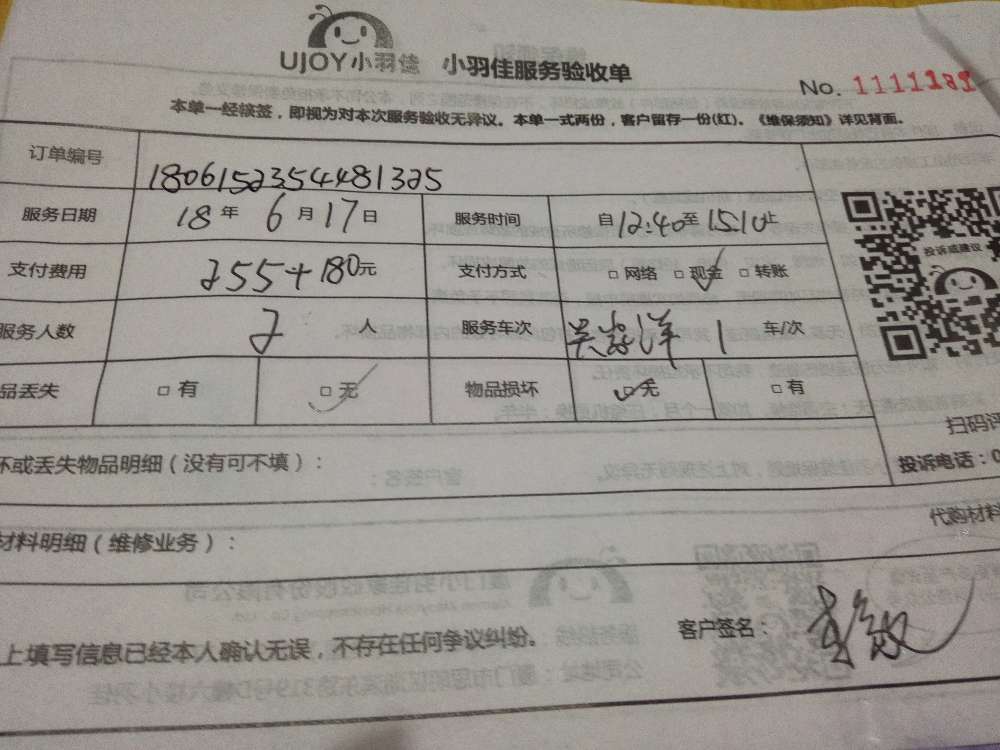 UJOY小羽佳 小羽佳服务验收单
No. 1111181
本单一经核签，即视为对本次服务验收无异议。本单一式两份，客户留存一份(红)。《维保须知》详见背面。
订单编号 1806152354481325
服务日期 18年 6月17日 服务时间 自12:40至15:10止
支付费用 255+180元 支付方式 □网络 □现金 □转账
服务人数 2 人 服务车次 1 车/次
品丢失 □有 □无 物品损坏 □无 □有
投诉或建议
扫码评
坏或丢失物品明细（没有可不填）：
投诉电话：0
代购材料
材料明细（维修业务）：
上填写信息已经本人确认无误，不存在任何争议纠纷。 客户签名：